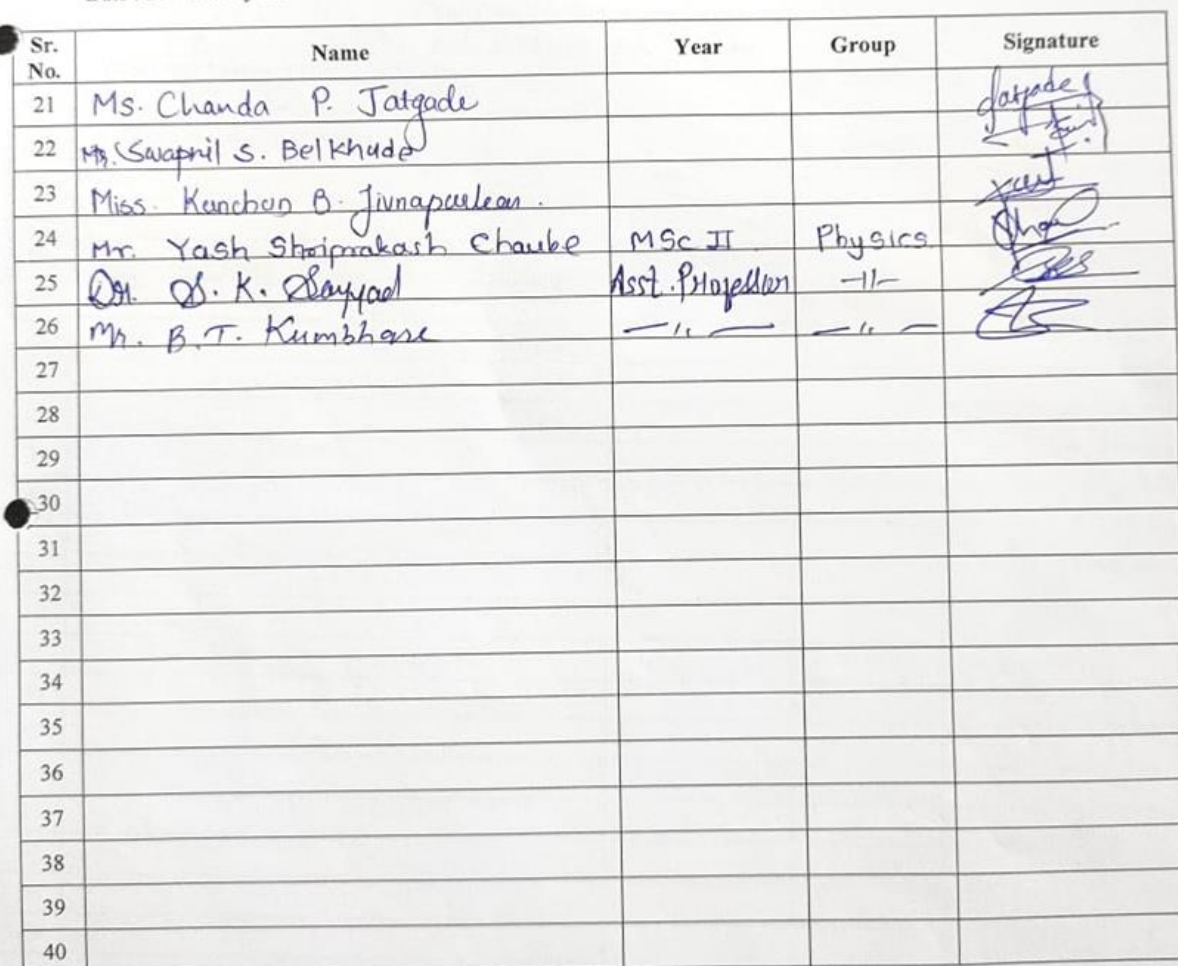 Sr. No. Name Year Group Signature
21 Ms. Chanda P. Jatgade Jatgade
22 Mr. Swapnil S. Belkhude
23 Miss. Kanchan B. Jivnapurkar.
24 Mr. Yash Shriprakash Chaube MSc II Physics
25 Dr. S. K. Sayyad Asst. Professor -11-
26 Mr. B. T. Kumbhare — 11 — — 11 —
27
28
29
30
31
32
33
34
35
36
37
38
39
40